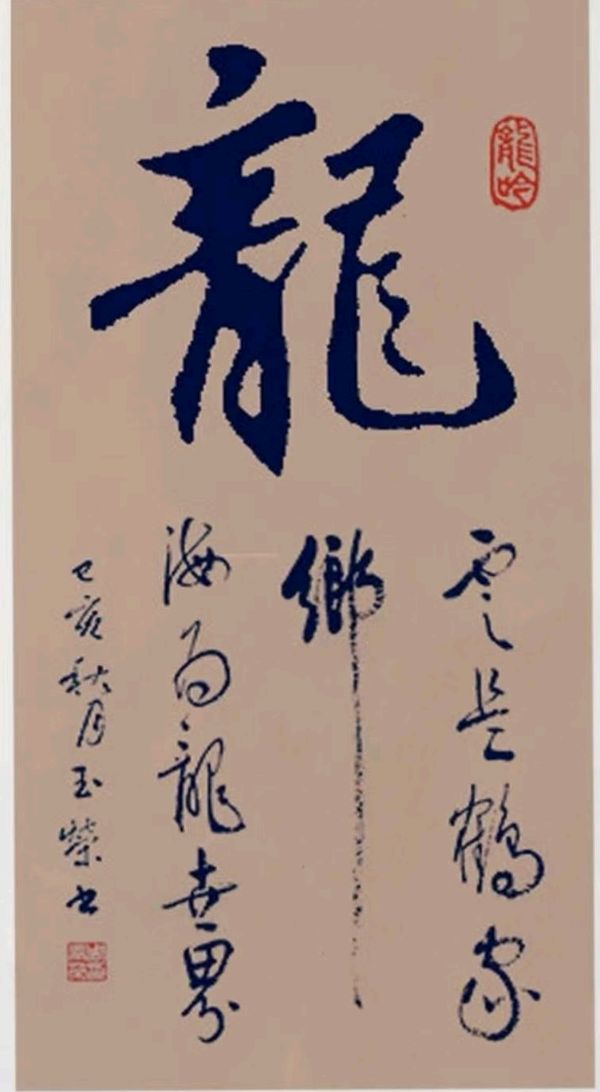 龍
龍吟
雲是鶴家
鄉
海為龍世界
己亥秋月玉榮书